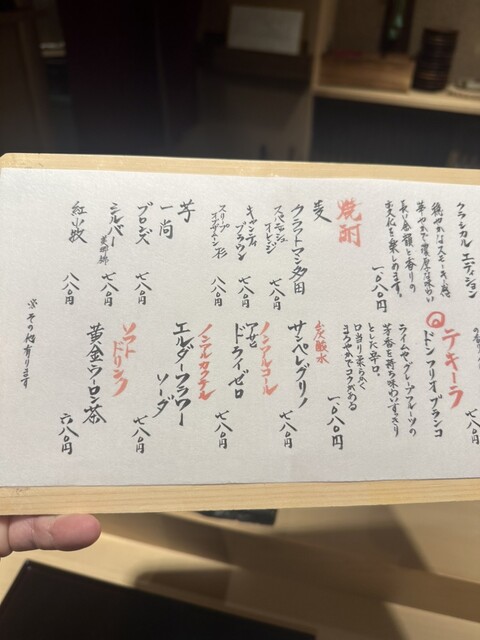 クラシカル エディション
穏やかなスモーキー感
華やかで濃厚な味わい
長い余韻と香りの
変化を楽しめます。
一、〇八〇円
焼酎
麦
クラフトマン多田
スパニッシュオレンジ 七八〇円
キャンティブラウン 七八〇円
スリープ
杉 八八〇円
芋
一尚
ブロンズ 七八〇円
シルバー 七八〇円
紅小牧 八八〇円
七八〇円
テキーラ
ドン フリオ ブランコ
ライムや、グレープフルーツの
芳香を持ち味わいすっきり
とした辛口。
口当り柔らかく
まろやかでコクがある
一、〇八〇円
炭酸水
サンペレグリノ 七八〇円
ノンアルコール
アサヒ
ドライゼロ 七八〇円
ノンアルカクテル
エルダーフラワー
ソーダ 七八〇円
ソフト
ドリンク
黄金ウーロン茶 六八〇円
※その他有ります